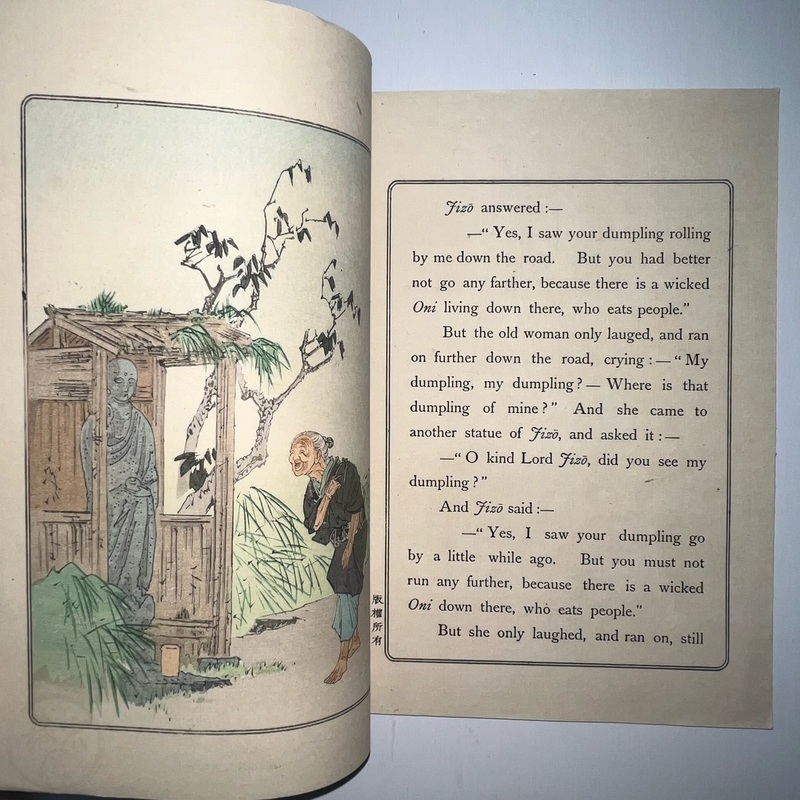 版權所有
Jizō answered:—
—“ Yes, I saw your dumpling rolling
by me down the road. But you had better
not go any farther, because there is a wicked
Oni living down there, who eats people.”
But the old woman only lauged, and ran
on further down the road, crying:—“ My
dumpling, my dumpling?— Where is that
dumpling of mine?” And she came to
another statue of Jizō, and asked it:—
—“ O kind Lord Jizō, did you see my
dumpling?”
And Jizō said:—
—“ Yes, I saw your dumpling go
by a little while ago. But you must not
run any further, because there is a wicked
Oni down there, who eats people.”
But she only laughed, and ran on, still